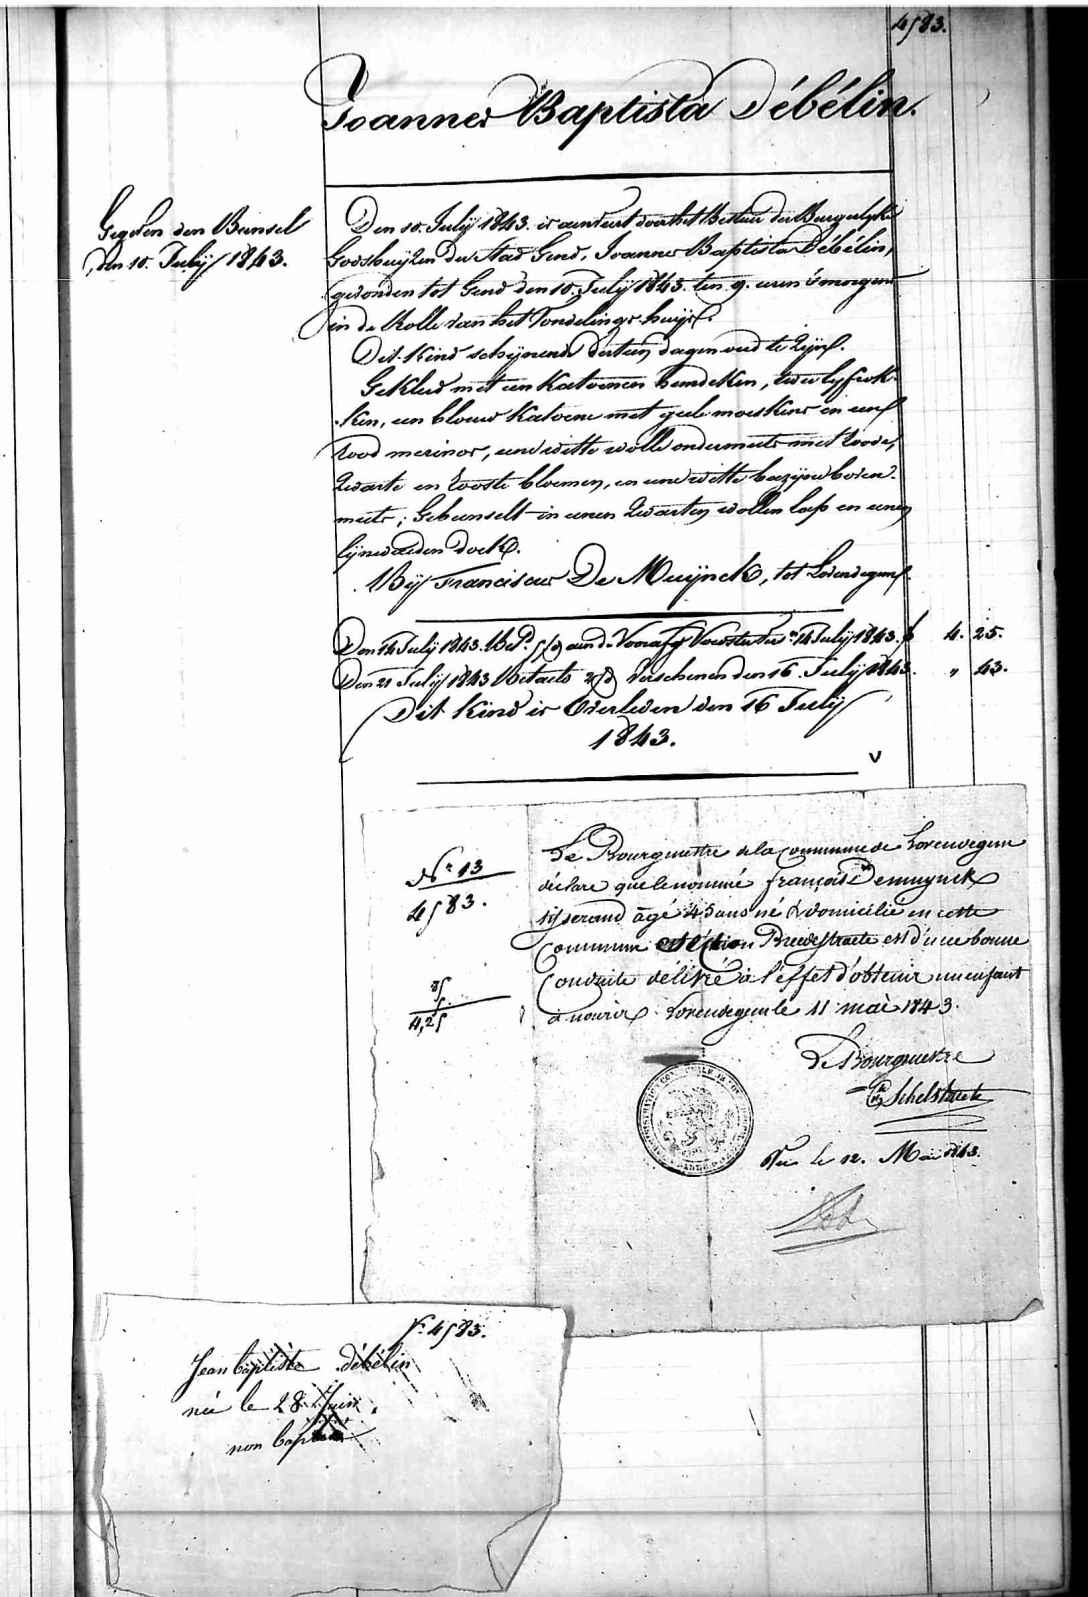 4583.
Joannes Baptista Débélin.
Gegeven den Bunsel
den 10. July 1843.
Den 10. July 1843. is aenveert door het Bestuer der Burgerlyke
Godshuyzen der Stad Gend, Joannes Baptista Débélin,
gevonden tot Gend den 10. July 1843. ten 9. uren 's morgens
in de Rolle van het Vondelings-huys.
Dit Kind schynende dertien dagen oud te zyn.
Gekleed met een Katoenen hemdeken, twee lyfrok-
ken, een blouw Katoene met geele moeskens en een
rood merinos, eene witte wolle ondermuts met roode,
zwarte en rooste bloemen, en eene witte bazyne boven-
muts; Gebunselt in eenen zwarten wollen lap en eenen
lynwaeden doek.
By Franciscus De Muynck, tot Lovendegem.
Den 14 July 1843. Bet. aen de Voorafg Voedster 14 July 1843. f 4. 25.
Den 21 July 1843 Betaelt verschenen den 16. July 1843. " 43.
Dit Kind is Overleden den 16 July
1843.
V
N.r 13
4583.
Le Bourgmestre de la Commune de Lovendegem
déclare que le nommé François Demuynck
tisserand âgé 45 ans né & domicilié en cette
Commune section Breedestraete est d'une bonne
Conduite délivré à l'effet d'obtenir un enfant
à nourir. Lovendegem le 11 mai 1843.
85
4,25
Le Bourgmestre
Schelstraete
Vu le 12. Mai 1843.
N.o 4583.
Jean baptiste débélin
née le 28 Juin.
non baptisé